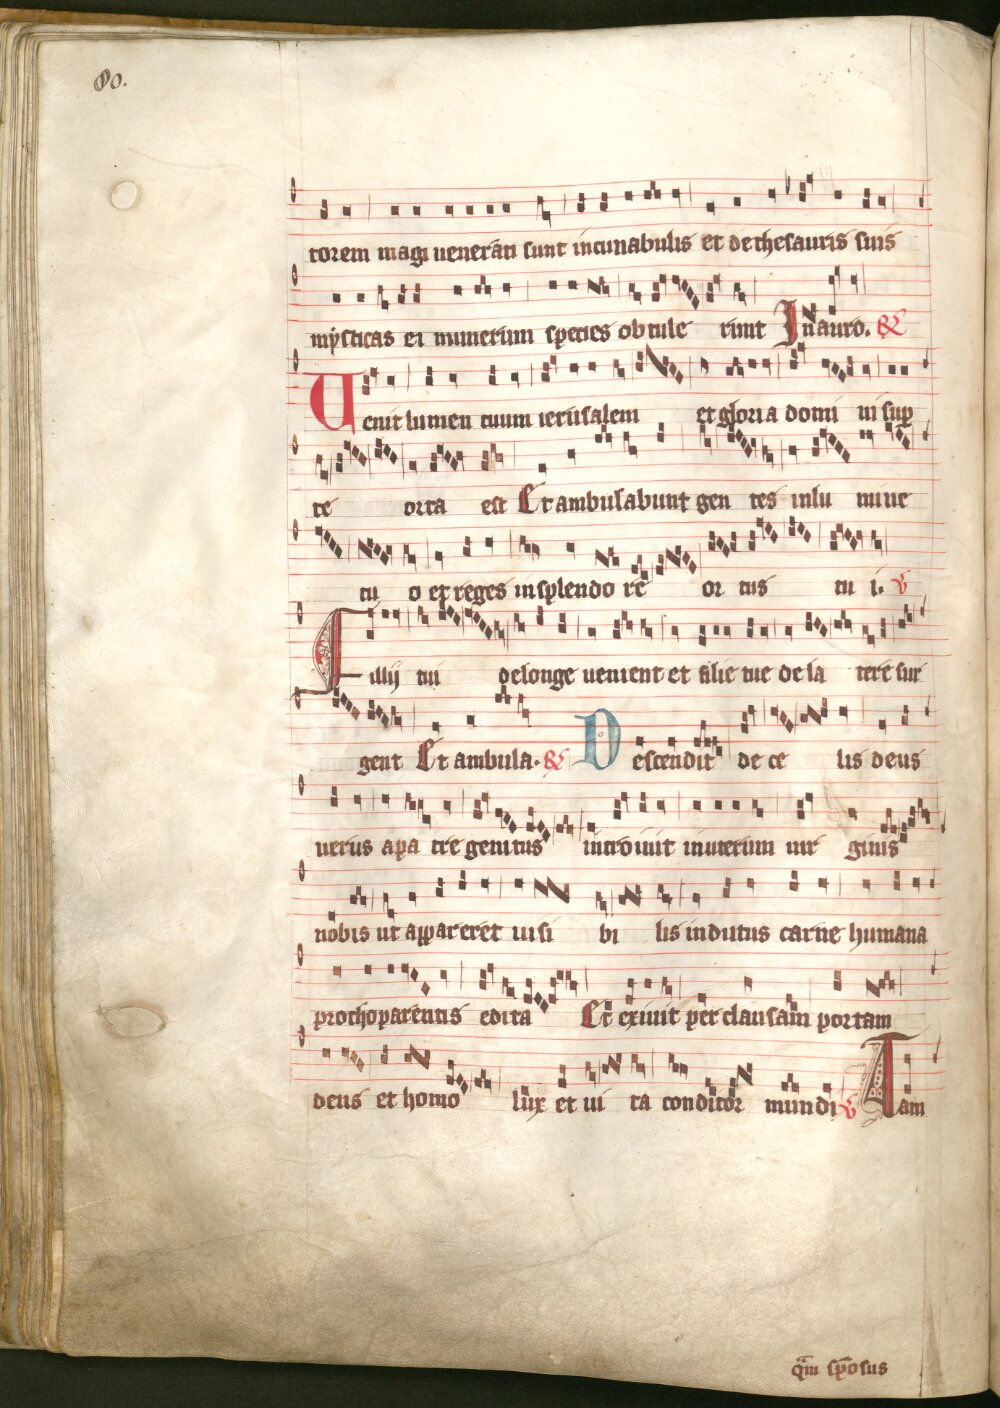 80.
torem magi uenerāti sunt incunabulis et de thesauris suis
mysticas ei munerum species obtule runt Inauro. &
Uenit lumen tuum ierusalem et gloria domi ni sup
te orta est Et ambulabunt gen tes inlu mine
tu o et reges insplendo re or tus tu i. v
Filij tui de longe uenient et filie tue de la tere sur
gent Et ambula. & Descendit de ce lis deus
uerus apa tre genitus introiuit inuterum uir ginis
nobis ut appareret uisi bi lis indutus carne humana
prothoparentis edita Et exiuit per clausam portam
deus et homo lux et ui ta conditor mundi v Tam
q̄m sp̄osus